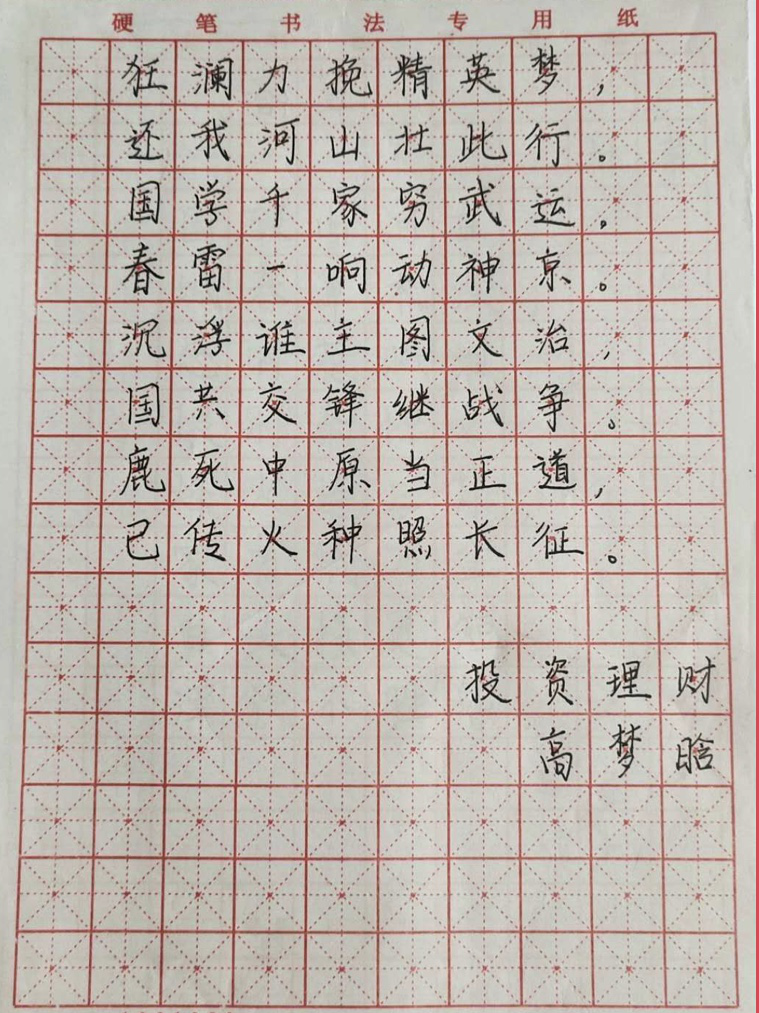 硬笔书法专用纸
狂澜力挽精英梦，
还我河山壮此行。
国学千家穷武运。
春雷一响动神京。
沉浮谁主图文治，
国共交锋继战争。
鹿死中原当正道，
已传火种照长征。
投资理财
高梦晗